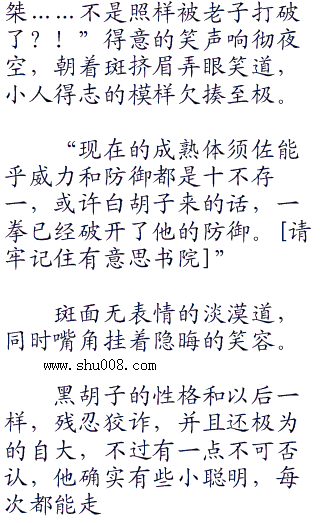 桀……不是照样被老子打破
了?！”得意的笑声响彻夜
空，朝着斑挤眉弄眼笑道，
小人得志的模样欠揍至极。
“现在的成熟体须佐能
乎威力和防御都是十不存
一，或许白胡子来的话，一
拳已经破开了他的防御。[请
牢记住有意思书院]”
斑面无表情的淡漠道，
同时嘴角挂着隐晦的笑容。
www.shu008.com
黑胡子的性格和以后一
样，残忍狡诈，并且还极为
的自大，不过有一点不可否
认，他确实有些小聪明，每
次都能走